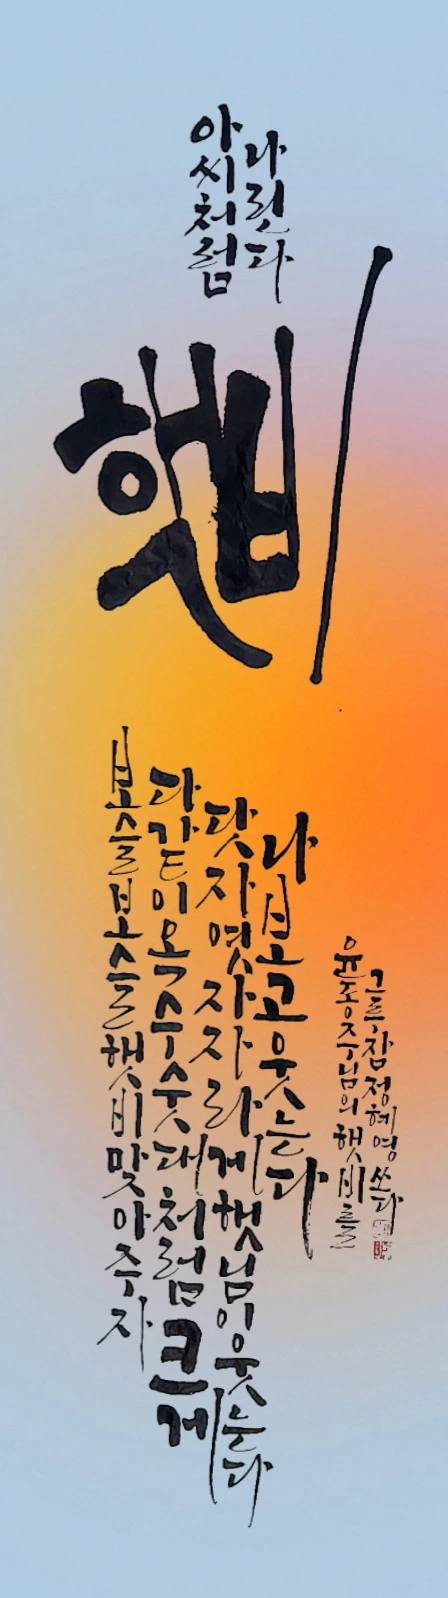 아씨처럼
나린다
햇비
보슬보슬햇비맞아주자
다같이옥수숫대처럼크게
닷자엿자자라게햇님이웃는다
나보고웃는다
윤동주님의 햇비를
정혜영 쓰다